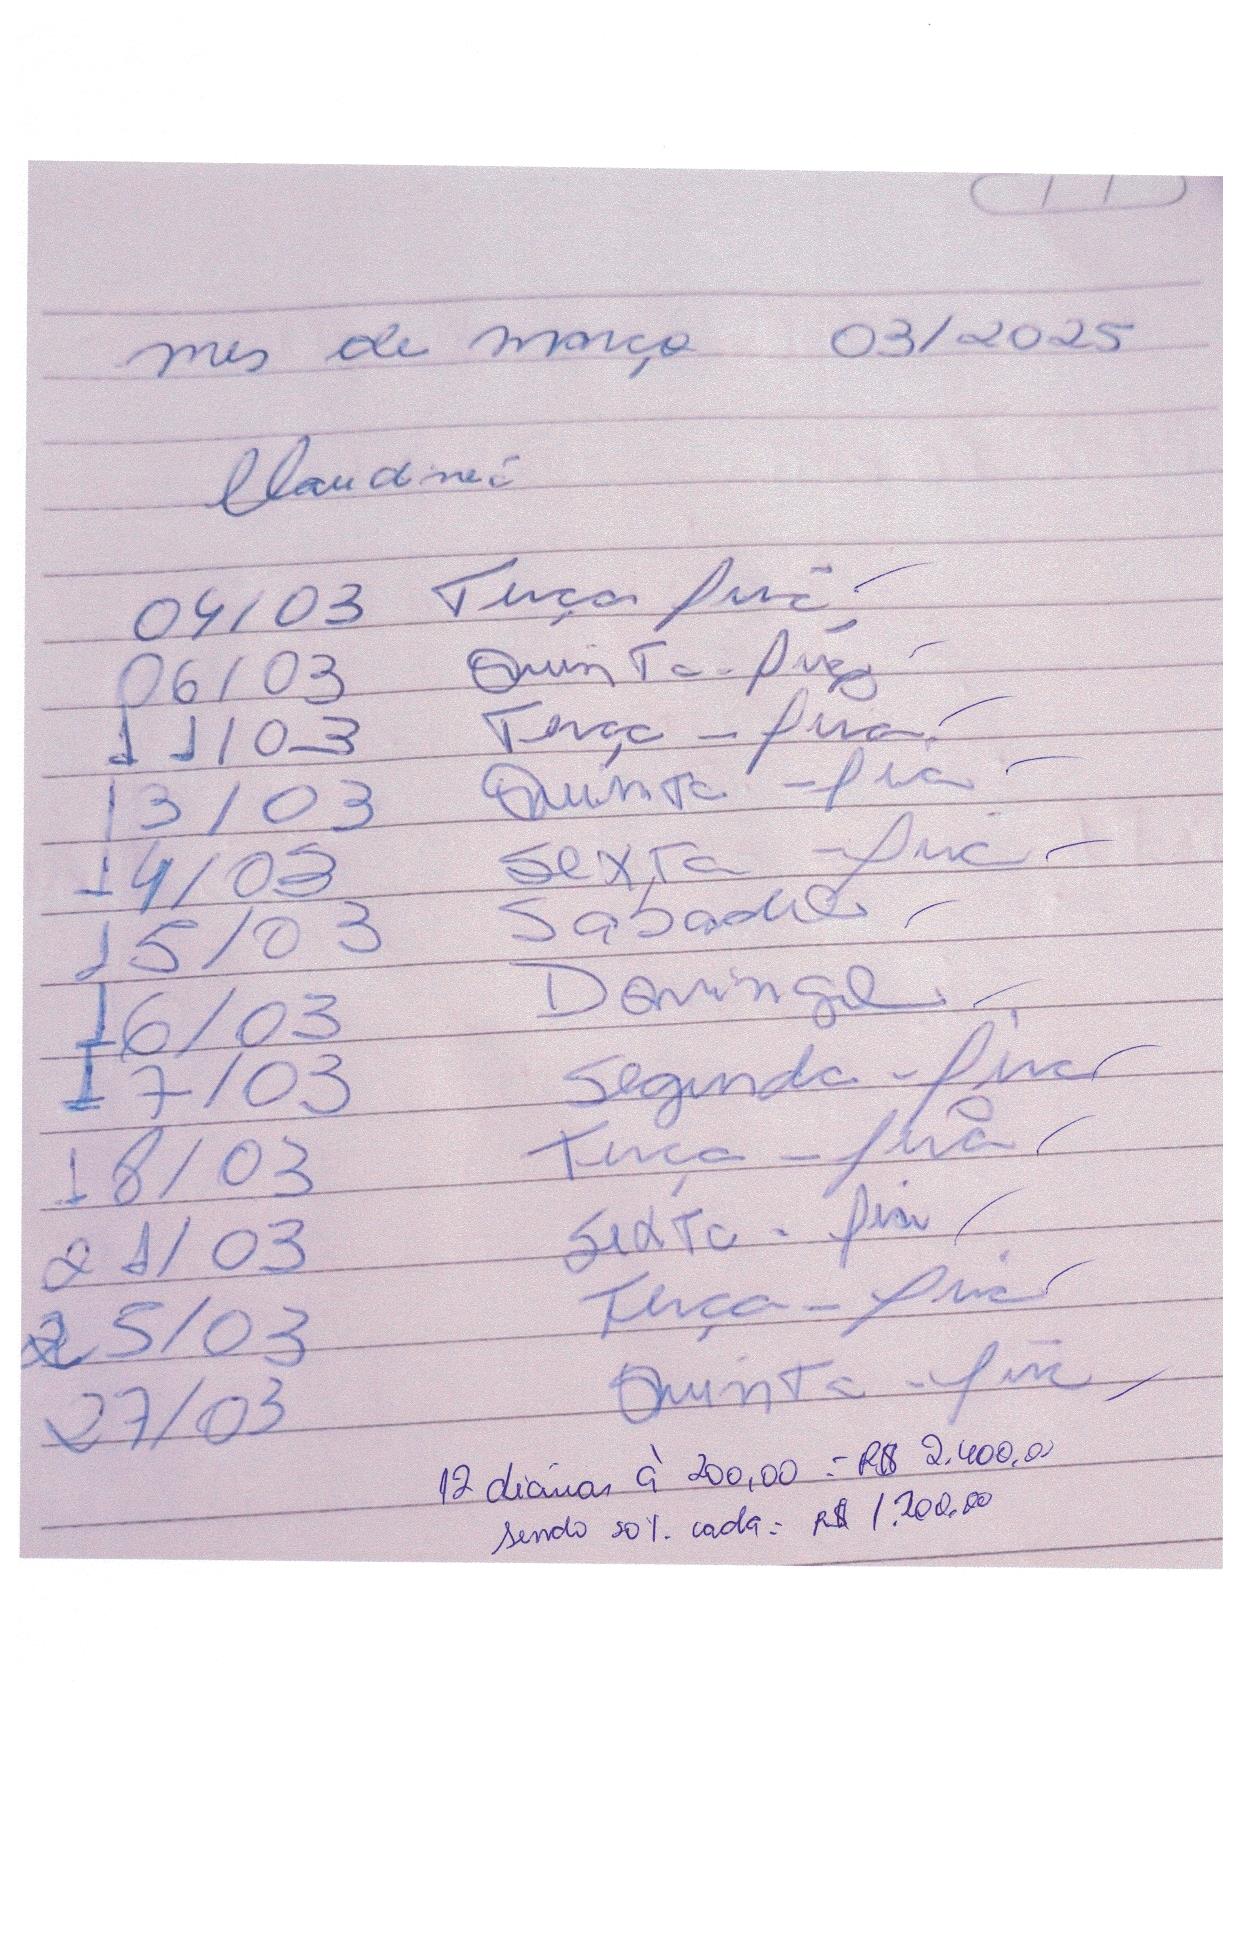 mes de março 03/2025
Claudinei
04/03 Terça feira
06/03 Quinta-feira
11/03 Terça-feira
13/03 Quinta-feira
14/03 Sexta-feira
15/03 Sabado
16/03 Domingo
17/03 Segunda-feira
18/03 Terça-feira
21/03 Sexta-feira
25/03 Terça-feira
27/03 Quinta-feira
12 diárias à 200,00 = R$ 2.400,00
sendo 50%. cada = R$ 1.200,00